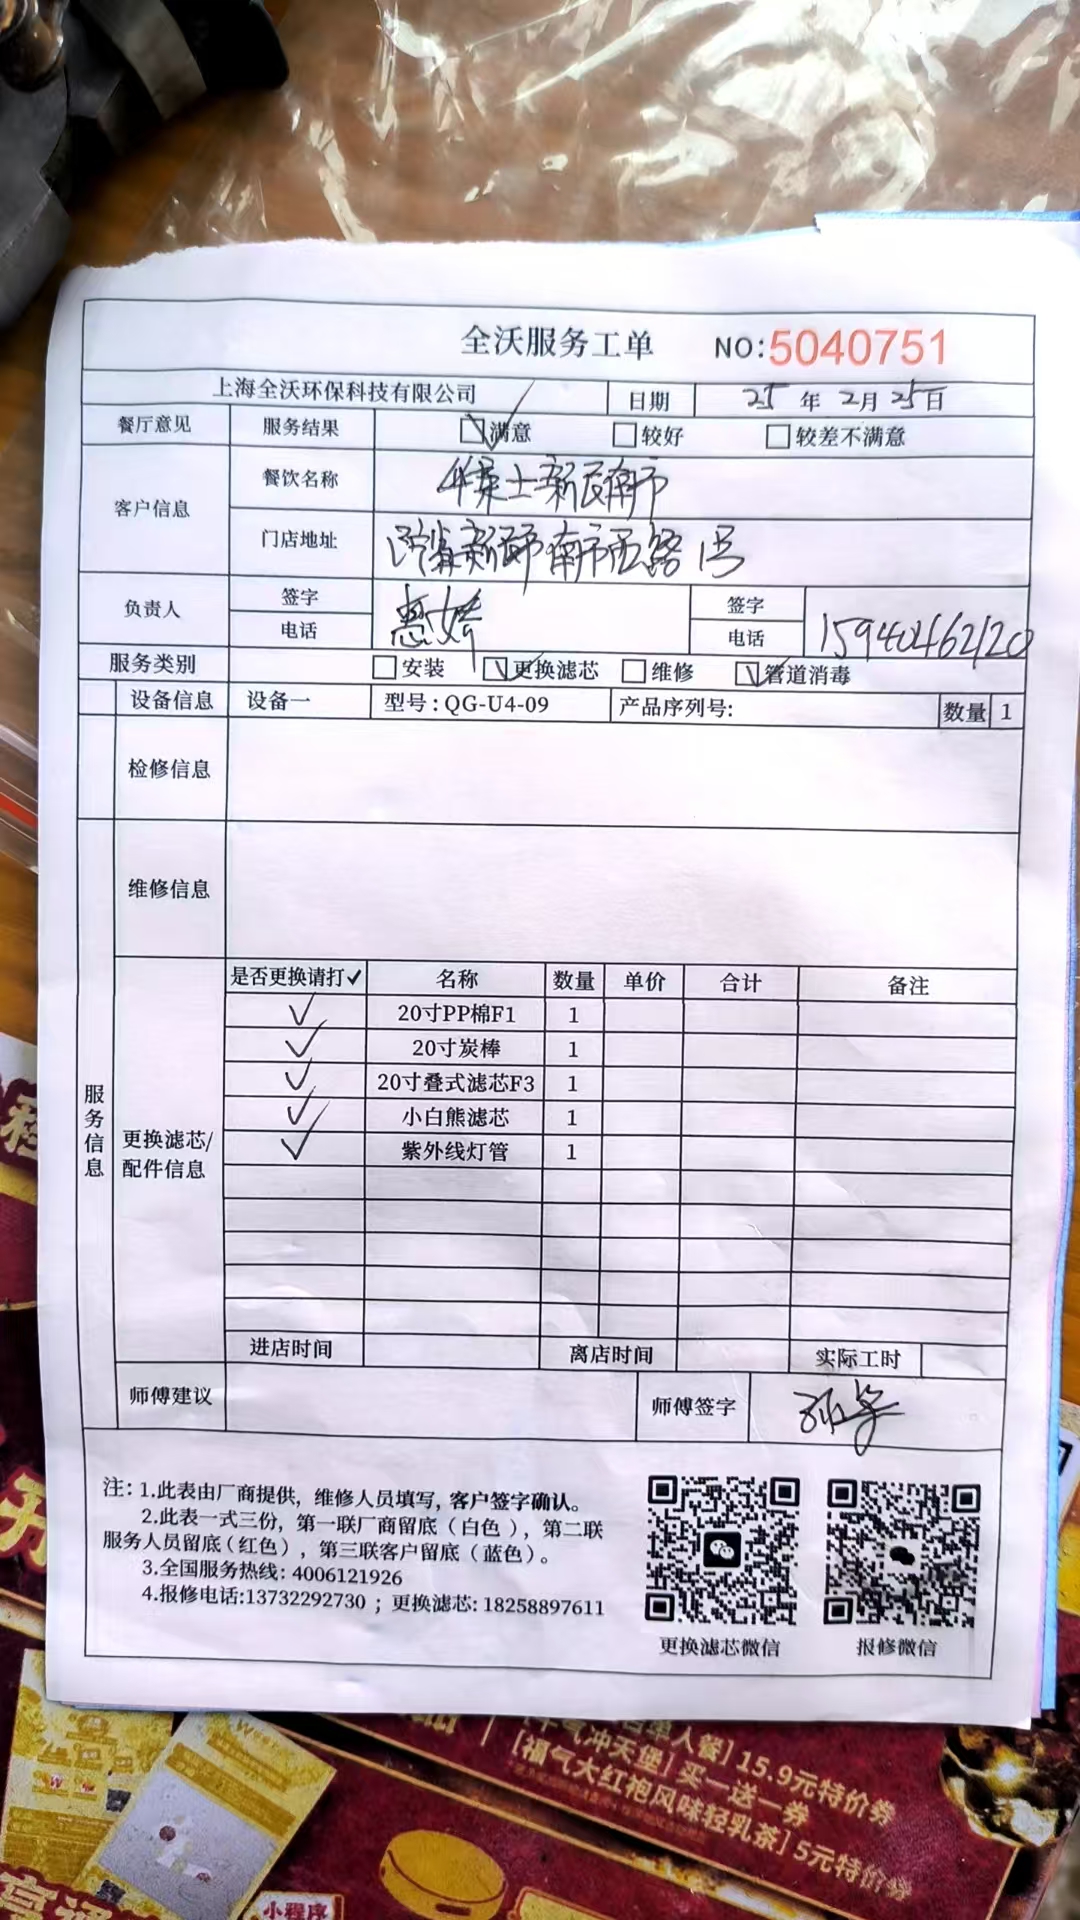 全沃服务工单 NO:5040751
上海全沃环保科技有限公司 日期 25年2月25日
餐厅意见 服务结果 满意 较好 较差不满意
客户信息 餐饮名称 士新民南市
门店地址 省新民市南市西路1号
负责人 签字 签字
电话 电话 15940462120
服务类别 安装 更换滤芯 维修 管道消毒
设备信息 设备一 型号:QG-U4-09 产品序列号: 数量 1
检修信息
维修信息
服务信息
更换滤芯/
配件信息
是否更换请打✓ 名称 数量 单价 合计 备注
✓ 20寸PP棉F1 1
✓ 20寸炭棒 1
✓ 20寸叠式滤芯F3 1
✓ 小白熊滤芯 1
✓ 紫外线灯管 1
进店时间 离店时间 实际工时
师傅建议 师傅签字
注:1.此表由厂商提供,维修人员填写,客户签字确认。
2.此表一式三份,第一联厂商留底(白色),第二联
服务人员留底(红色),第三联客户留底(蓝色)。
3.全国服务热线:4006121926
4.报修电话:13732292730;更换滤芯:18258897611
更换滤芯微信 报修微信
人餐]15.9元特价券
冲天堡]买一送一券
[福气大红袍风味轻乳茶]5元特价券
小程序